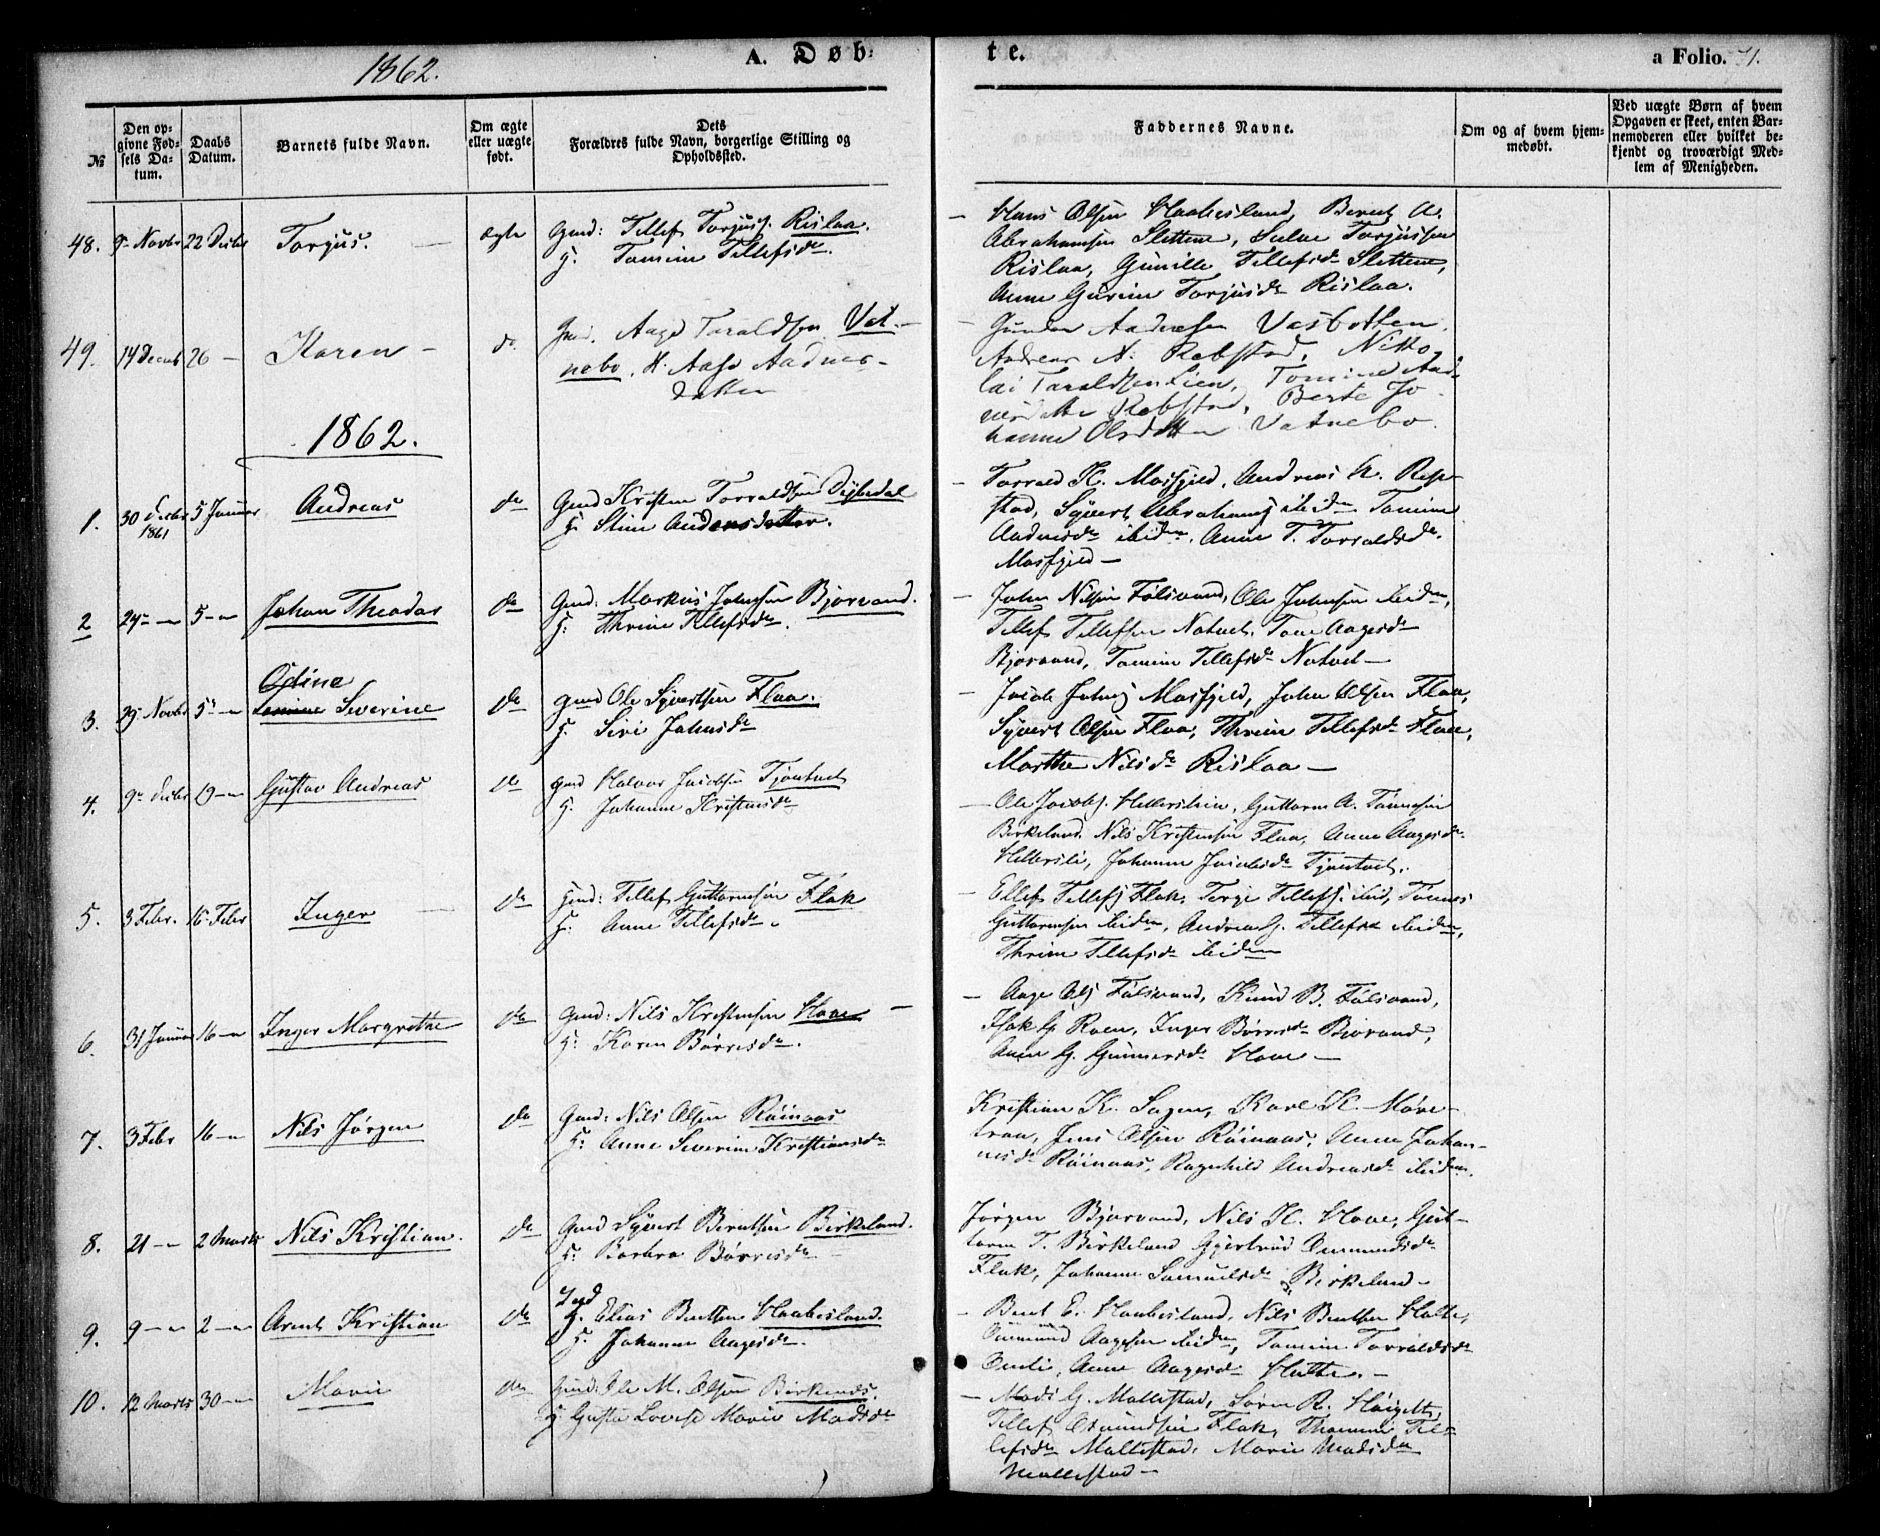 1862.
A. Døb-
te.
a Folio. 71.
№
Den op-
givne Fød-
sels Da-
tum.
Daabs
Datum.
Barnets fulde Navn.
Om ægte
eller uægte
født.
Dets
Forældres fulde Navn, borgerlige Stilling og
Opholdssted.
Faddernes Navne.
Om og af hvem hjem-
medøbt.
Ved uægte Børn af hvem
Opgaven er skeet, enten Bar-
nemoderen eller hvilket be-
kjendt og troværdigt Med-
lem af Menigheden.
48. 9 Novbr 22 Decbr Torjus. ægte Gmd: Tellef Torjus. Rislaa.
H. Tomine Tellefsdr.
— Hans Olsen Haabesland, Berent A.
Abrahamsen Slettene, Salve Torjussen
Rislaa, Gunille Tellefsdr Slettene,
Anne Gurine Torjusdr Rislaa.
49. 14 Decbr 26 — Karen — do. Aage Taraldsen Vat-
nebo. H. Aase Aadnes-
datter
— Gunder Aadnesen Vasbotten,
Andreas A. Rebstad, Niko-
lai Taraldsen Lien, Tomine Aad-
nesdatter Rebstad, Berte Jo-
hanne Olsdatter Vatnebo.
1862.
1. 30 Decbr 1861 5 Januar Andreas do Gmd Kristen Torvaldsen Dybedal
H. Stine Andersdatter.
— Torvald K. Mosfjeld, Andreas A. Rep-
stad, Syvert Abrahams ibidm Tomine
Aadnesdr ibidm, Anne T. Torvaldsdr.
Mosfjeld —
2 29 — 5 — Johan Theodor do Gmd: Markus Johnsen Bjorvand.
H: Thrine Tellefsdr.
— John Nilsen Fölsvand, Ole Johnsen ibidm,
Tellef Tellefsen Natvet, Tone Aagesdr
Bjorvand, Tomine Tellefsdr Natvet —
3. 29 Novbr 5 — Odine
Severine do Gmd Ole Syvertsen Flaa.
H. Siri Johnsdr
— Jacob Johns Mosfjeld, John Olsen Flaa,
Syvert Olsen Flaa, Thrine Tellefsdr Flaa,
Marthe Nilsdr Rislaa —
4. 9 Decbr 19 — Gustav Andreas do Gmd Halvor Jacobsen Tjontvet
H. Johanne Kristensdr
— Ole Jacobs. Hellerslien, Guttorm A. Tönnesen
Birkeland. Nils Kristensen Flaa, Anne Aagesdr.
Hellersli, Johanne Jacobsdr Tjontvet.
5. 3 Febr. 16 Febr Inger do Gmd: Tellef Guttormsen Flak
H. Anne Tellefsdr.
— Ellef Tellefs Flak, Terje Tellefs. ibid, Tönnes
Guttormsen ibidm, Andrea G. Tellefsdr ibidm,
Thrine Tellefsdr ibidm
6. 31 Januar 16 — Inger Margrethe do Gmd: Nils Kristensen Hove —
H: Karen Börresdr.
— Aage Ols Fölsvand, Knud B. Fölsvand,
Isak G Roen, Inger Börresdr Bjorvand,
Anne G. Gunnersdr Hove —
7. 3 Febr 16 — Nils Jörgen do Gmd: Nils Olsen Röinaas
H: Anne Severine Kristiansdr
Kristian K. Sagen, Karl K. Möre-
traa, Jens Olsen Röinaas, Anne Johan-
nesdr Röinaas, Ragnhild Andreasdr ibidm.
8. 21 — 2 Marts Nils Kristian. do Gmd Syvert Berntsen Birkeland.
H: Barbro Börresdr —
Jörgen Bjorvand, Nils K. Hove, Gut-
torm T. Birkeland Gjertrud Omundsdr
Flak, Johanne Samuelsdr Birkeland —
9. 9 — 2 — Arent Kristian do H. Elias Bentsen Haabesland.
H. Johanne Aagesdr.
— Bent E. Haabesland, Nils Bentsen Holte,
Ommund Aagesen ibidm, Tomine Torvaldsdr
Omli, Anne Aagesdr Holte. —
10. 12 Marts 30 — Marie do Gmd. Ole M. Olsen Birkenes.
H Gusta Lovise Marie Madsdr
— Mads G. Mollestad, Sören R. Höigilt,
Tellef Osmundsen Flak, Thomine Tel-
lefsdr Mollestad, Marie Madsdr
Mollestad —